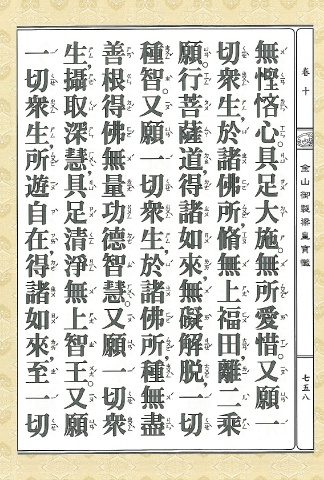 卷十
金山御製梁皇寶懺
七五八
無慳悋心。具足大施。無所愛惜。又願一
切眾生。於諸佛所。脩無上福田。離二乘
願。行菩薩道。得諸如來。無礙解脫。一切
種智。又願一切眾生。於諸佛所。種無盡
善根。得佛無量功德智慧。又願一切眾
生。攝取深慧。具足清淨無上智王。又願
一切眾生。所遊自在。得諸如來。至一切